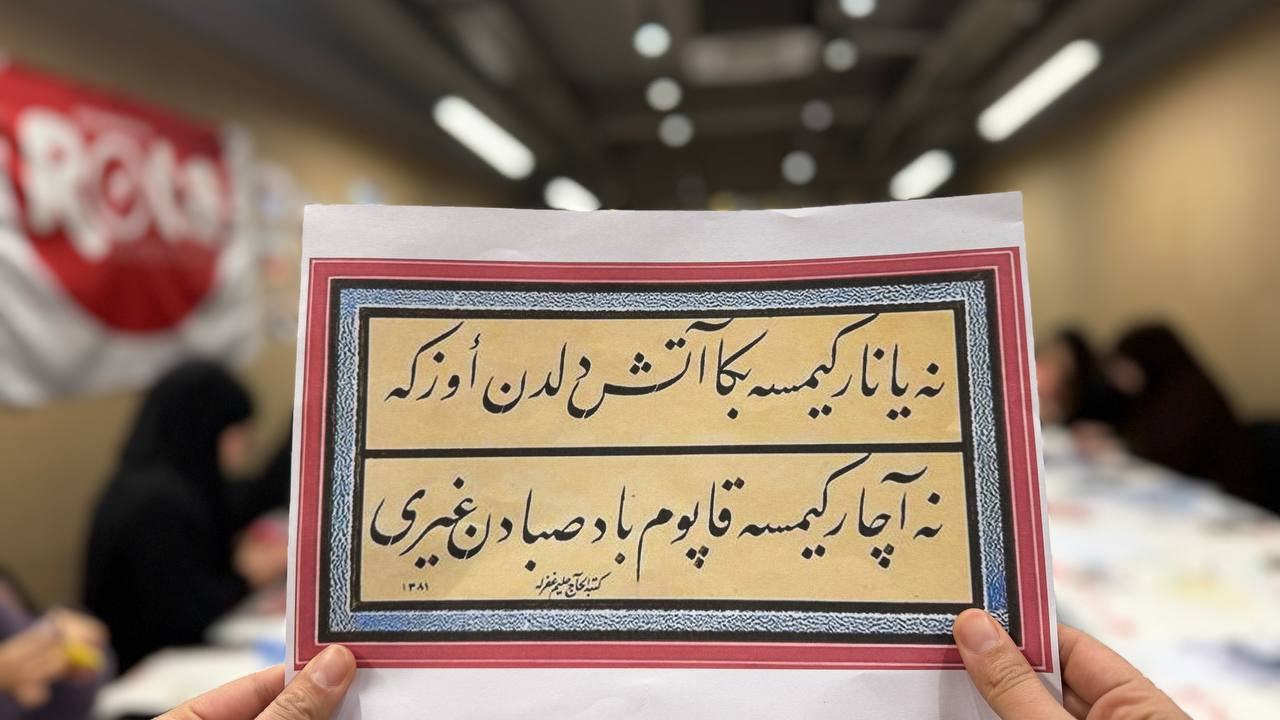 نه يانار كيمسه بكا آتش دلدن أوزكه
نه آچار كيمسه قاپوم باد صبادن غيرى
كتبه الحاج حليم غفرله
١٣٨١